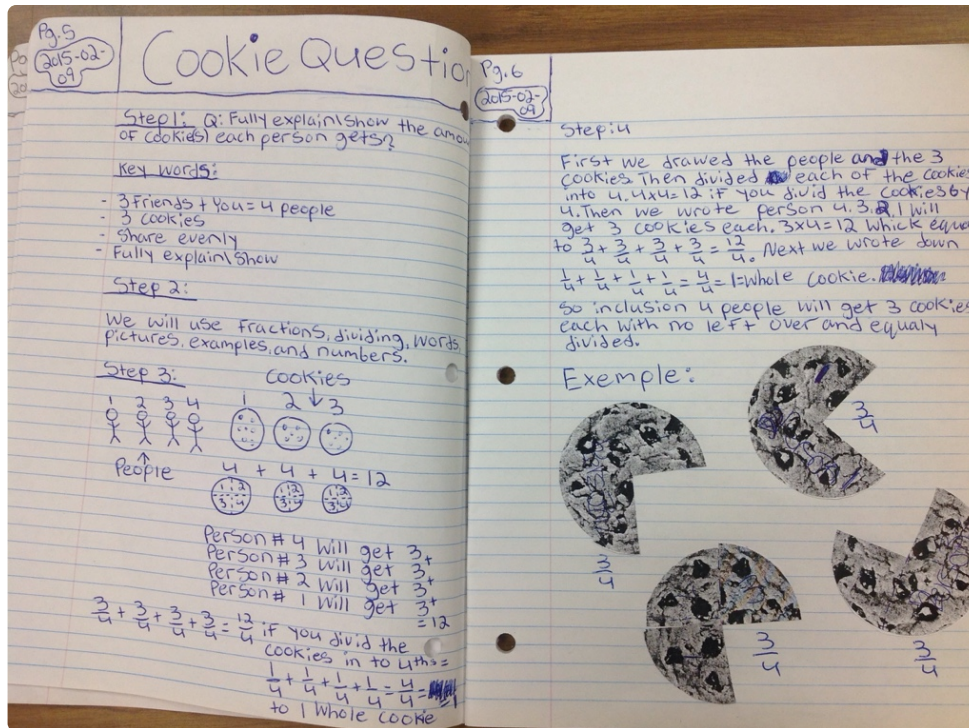 Pg.5
2015-02-
09
Cookie Questio
Step1: Q: Fully explain\show the amou
of cookie(s) each person gets?
Key words:
- 3 Friends + You = 4 people
- 3 cookies
- Share evenly
- Fully explain\show
Step 2:
We will use fractions, dividing, words,
pictures, examples, and numbers.
Step 3:
Cookies
1 2 3 4
1 2 3
People
4 + 4 + 4 = 12
1 2
3 4
1 2
3 4
1 2
3 4
Person # 4 will get 3+
Person # 3 will get 3+
Person # 2 will get 3+
Person # 1 will get 3+
= 12
3/4 + 3/4 + 3/4 + 3/4 = 12/4 if you divid the
cookies in to 4ths =
1/4 + 1/4 + 1/4 + 1/4 = 4/4 =
to 1 whole cookie
Pg.6
2015-02-
09
Step:4
First we drawed the people and the 3
cookies. Then divided each of the cookies
into 4. 4x4=12 if you divid the cookies by
4. Then we wrote person 4, 3, 2, 1 will
get 3 cookies each. 3x4=12 whick equa
to 3/4 + 3/4 + 3/4 + 3/4 = 12/4. Next we wrote down
1/4 + 1/4 + 1/4 + 1/4 = 4/4 = 1=whole cookie.
So inclusion 4 people will get 3 cookies
each with no left over and equaly
divided.
Exemple:
3/4
3/4
3/4
3/4